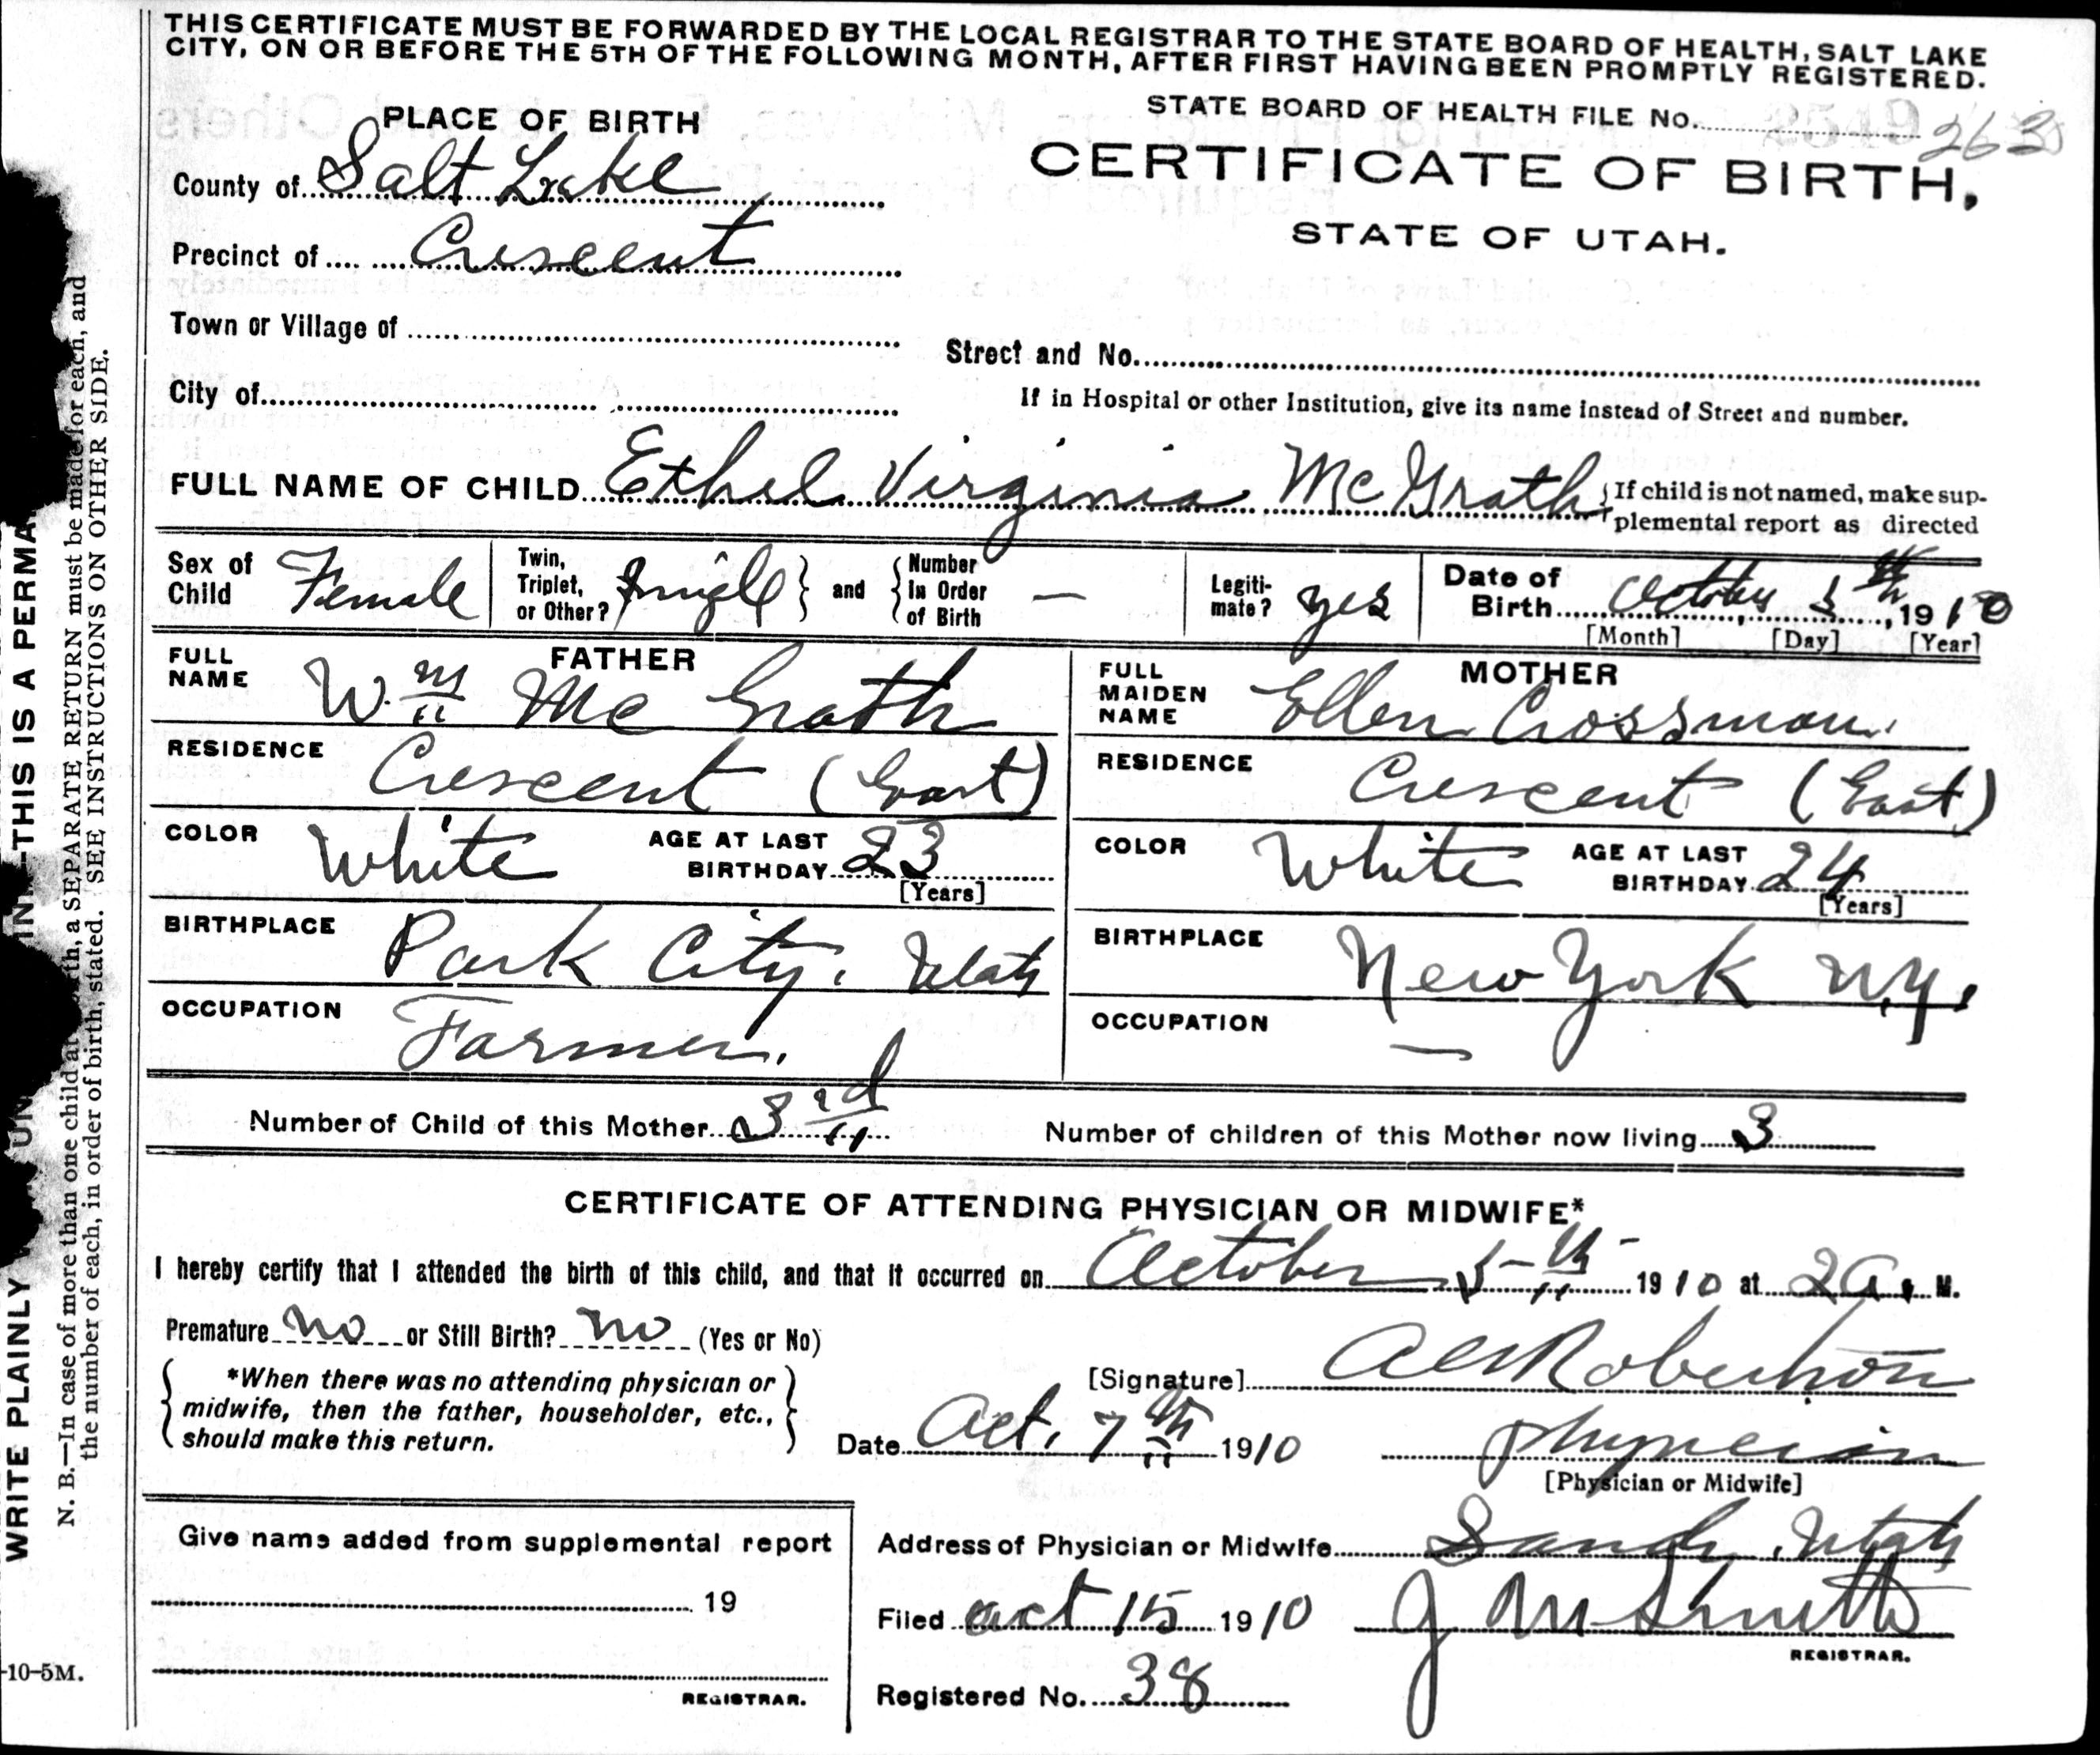 THIS CERTIFICATE MUST BE FORWARDED BY THE LOCAL REGISTRAR TO THE STATE BOARD OF HEALTH, SALT LAKE
CITY, ON OR BEFORE THE 5TH OF THE FOLLOWING MONTH, AFTER FIRST HAVING BEEN PROMPTLY REGISTERED.
PLACE OF BIRTH
STATE BOARD OF HEALTH FILE No. 263
CERTIFICATE OF BIRTH,
STATE OF UTAH.
County of Salt Lake
Precinct of Crescent
Town or Village of
Street and No.
City of
If in Hospital or other Institution, give its name instead of Street and number.
FULL NAME OF CHILD Ethel Virginia McGrath
If child is not named, make sup-
plemental report as directed
Sex of Child Female
Twin, Triplet, or Other? Single
and Number In Order of Birth —
Legiti-mate? yes
Date of Birth October 5th, 1910
[Month] [Day] [Year]
FATHER
FULL NAME Wm McGrath
RESIDENCE Crescent (East)
COLOR White AGE AT LAST BIRTHDAY 23
[Years]
BIRTHPLACE Park City, Utah
OCCUPATION Farmer.
MOTHER
FULL MAIDEN NAME Ellen Crossman
RESIDENCE Crescent (East)
COLOR White AGE AT LAST BIRTHDAY 24
[Years]
BIRTHPLACE New York N.Y.
OCCUPATION —
Number of Child of this Mother 3rd
Number of children of this Mother now living 3
CERTIFICATE OF ATTENDING PHYSICIAN OR MIDWIFE*
I hereby certify that I attended the birth of this child, and that it occurred on October 5th 1910 at 2 a. M.
Premature no or Still Birth? no (Yes or No)
*When there was no attending physician or
midwife, then the father, householder, etc.,
should make this return.
[Signature] Robertson
Date Oct. 7th 1910
physician
[Physician or Midwife]
Give name added from supplemental report
19
REGISTRAR.
Address of Physician or Midwife Sandy, Utah
Filed Oct 15 1910 J M Smith
REGISTRAR.
Registered No. 38
WRITE PLAINLY
THIS IS A PERMA
N. B.—In case of more than one child at birth, a SEPARATE RETURN must be made for each, and
the number of each, in order of birth, stated. SEE INSTRUCTIONS ON OTHER SIDE.
-10-5M.